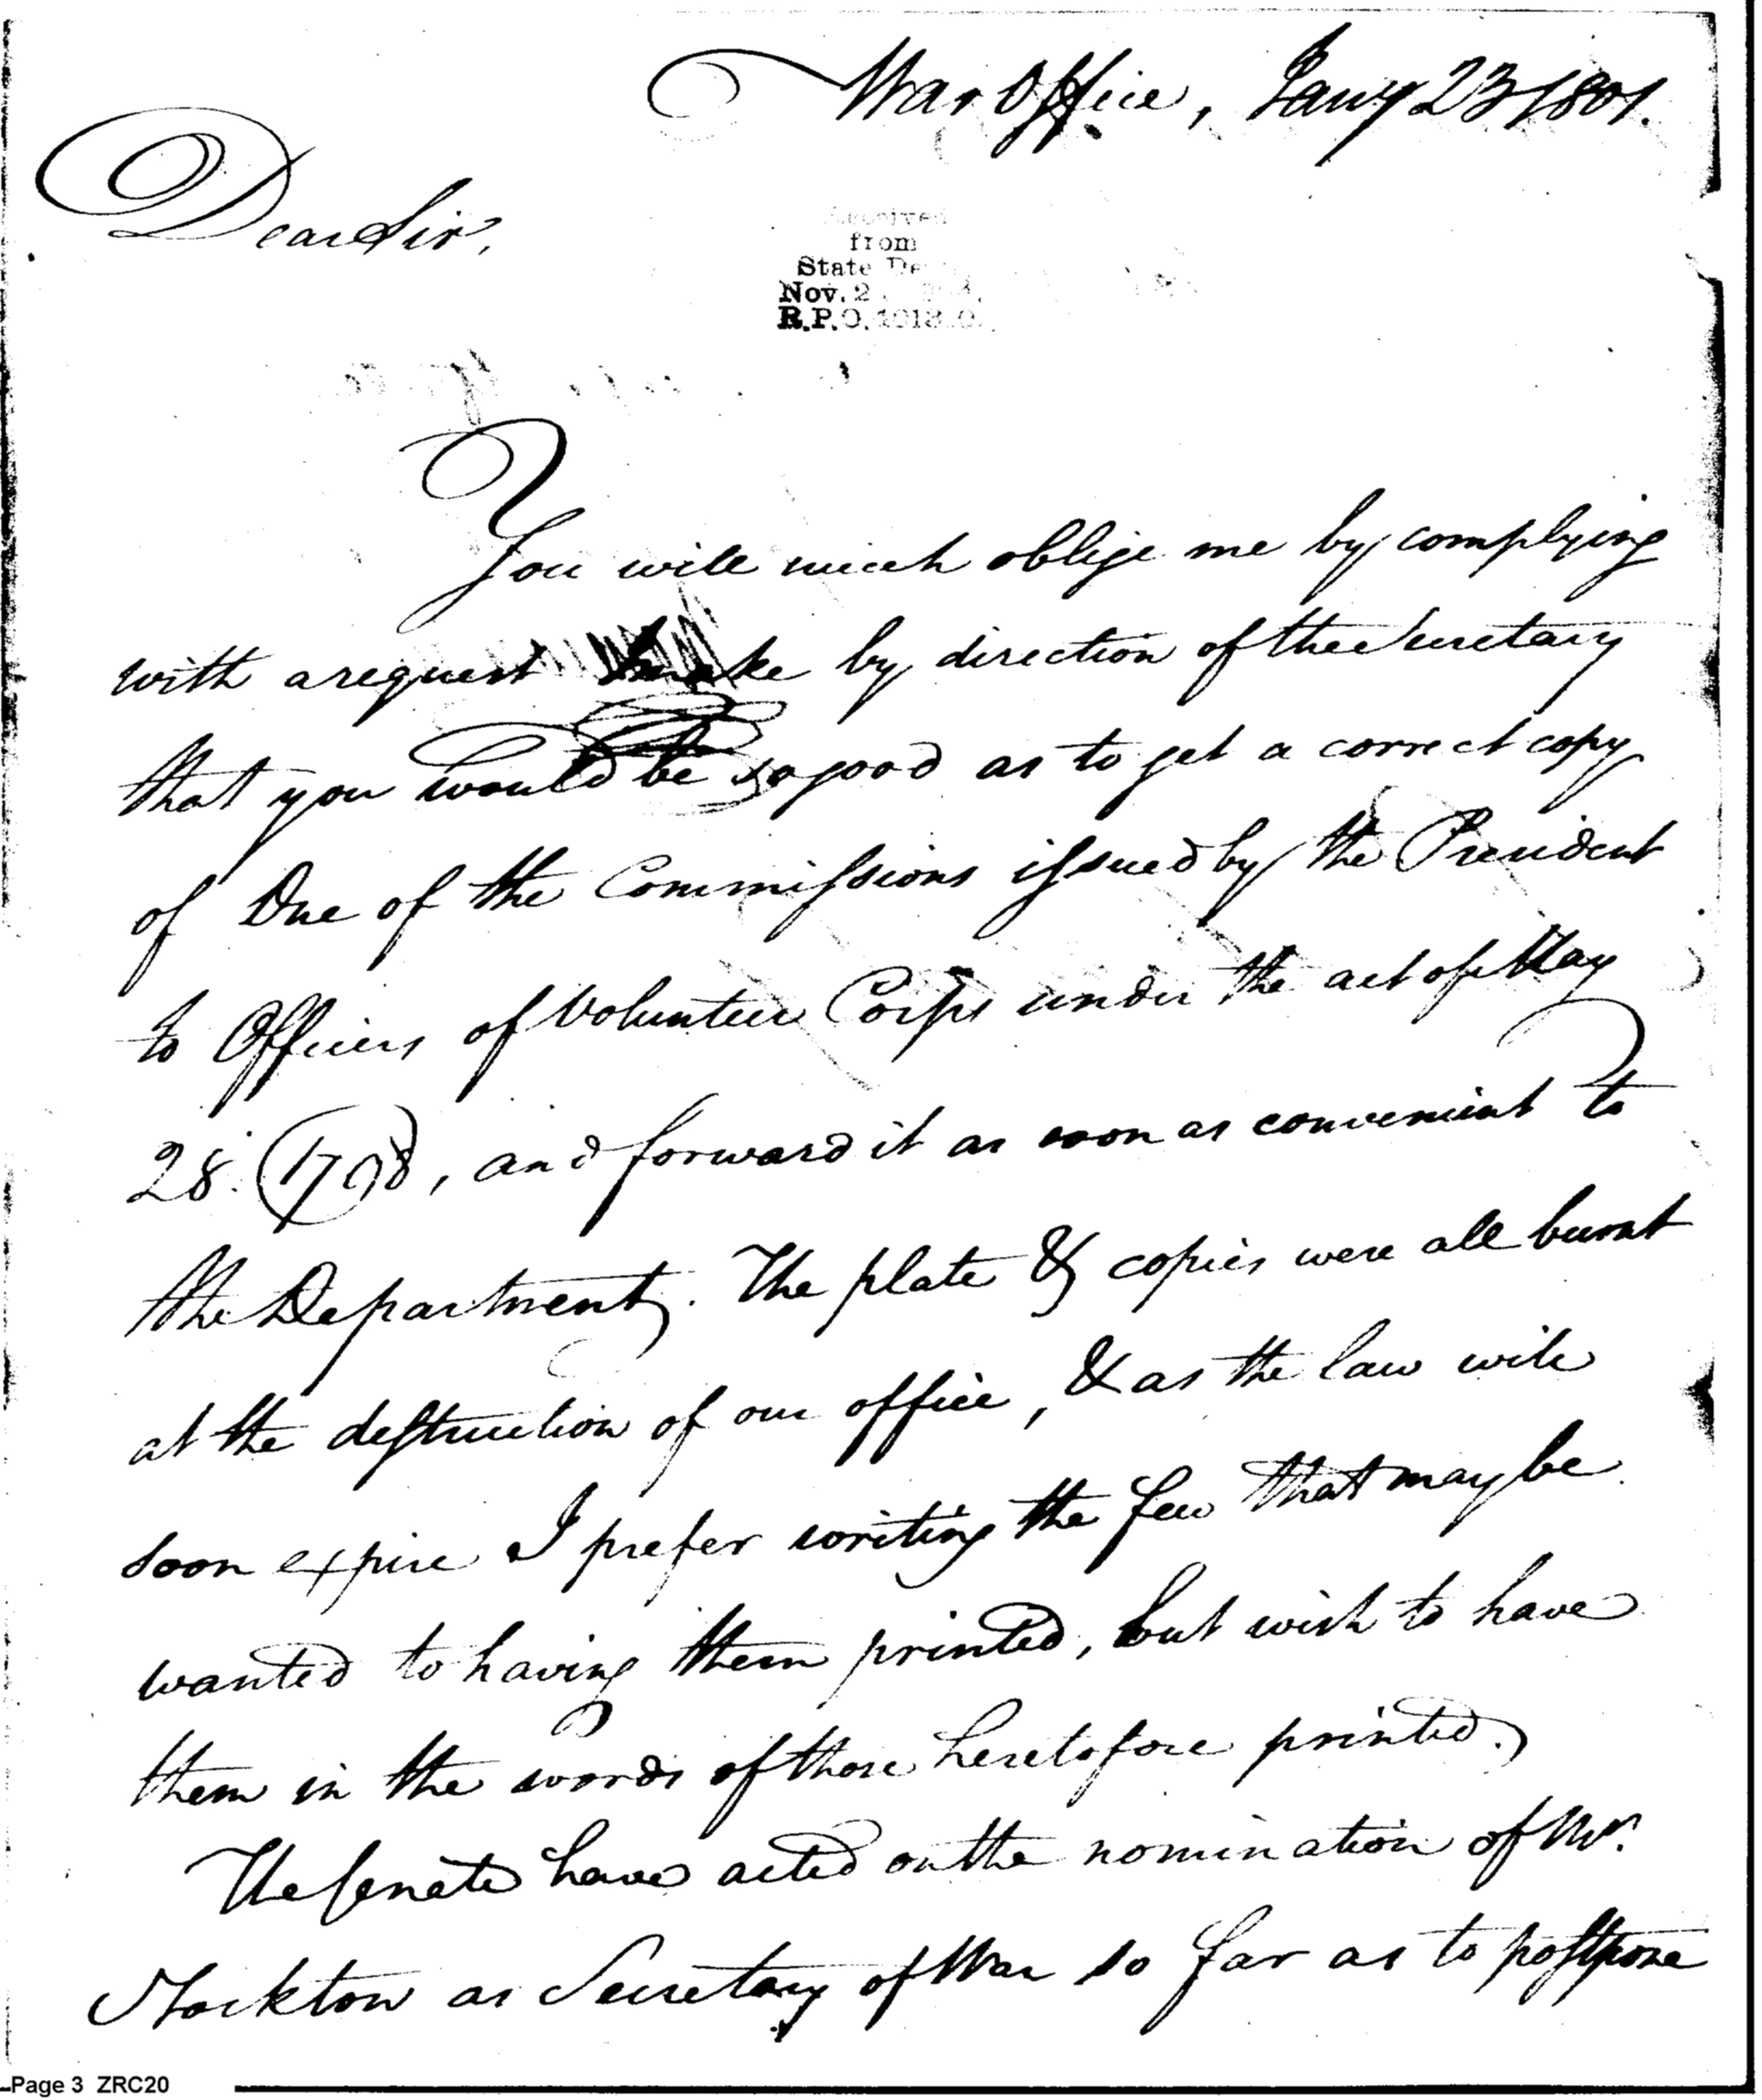 War Office, Jany 23 1801.
Dear Sir,
from
State De
Nov. 2
R.P.O.
You will much oblige me by complying
with a request I make by direction of the Secretary
that you would be so good as to get a correct copy
of One of the Commissions issued by the President
to Officers of Volunteer Corps under the act of May
28. (1798), and forward it as soon as convenient to
the Department. The plate & copies were all burnt
at the destruction of our office, & as the law will
soon expire I prefer writing the few that may be
wanted to having them printed, but wish to have
them in the words of those heretofore printed.
The Senate have acted on the nomination of Mr.
Stockton as Secretary of War so far as to postpone
Page 3 ZRC20